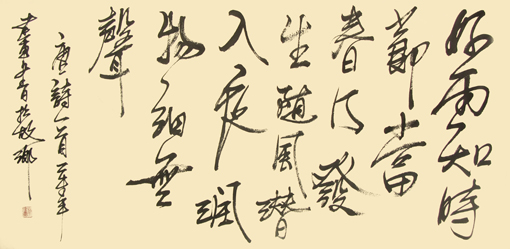 好雨知時
節當
春乃發
生隨風潛
入夜潤
物細無
聲
唐詩一首
於故鄉